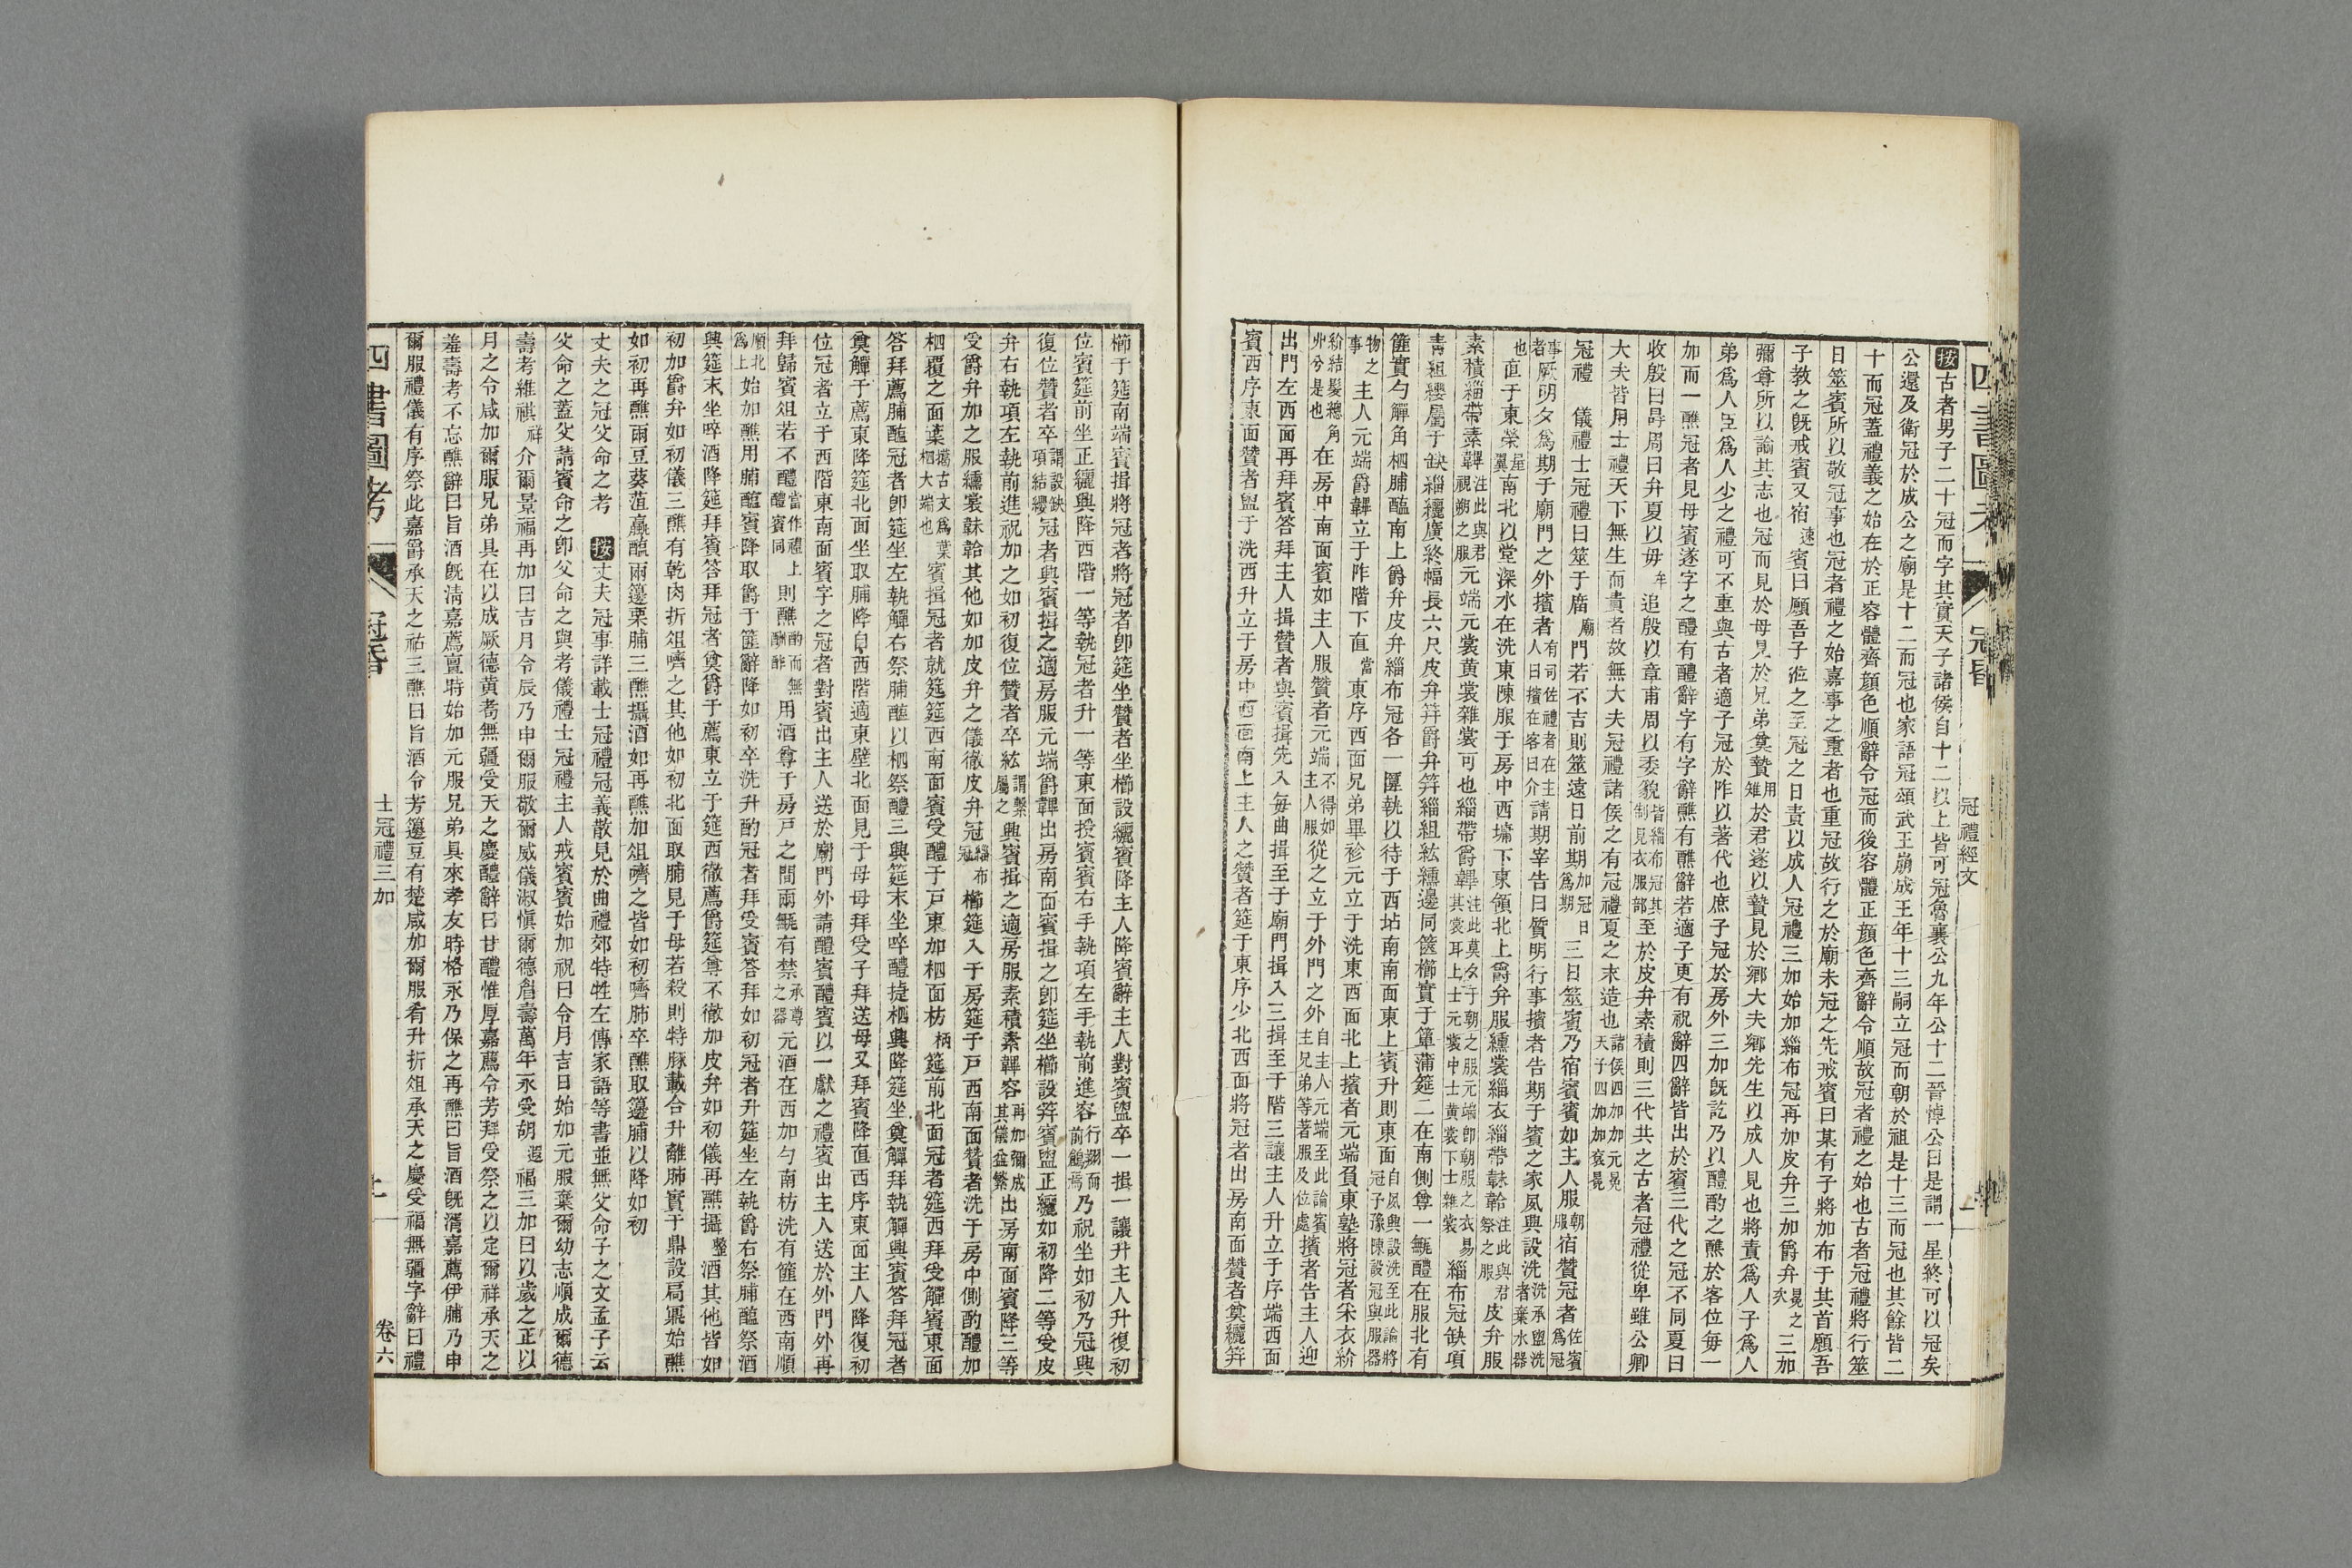 四書圖考
冠昏
冠禮經文
按古者男子二十冠而字其實天子諸侯自十二以上皆可冠魯襄公九年公十二晉悼公曰是謂一星終可以冠矣
公還及衛冠於成公之廟是十二而冠也家語冠頌武王崩成王年十三嗣立冠而朝於祖是十三而冠也其餘皆二
十而冠蓋禮義之始在於正容體齊顔色順辭令冠而後容體正顔色齊辭令順故冠者禮之始也古者冠禮將行筮
日筮賓所以敬冠事也冠者禮之始嘉事之重者也重冠故行之於廟未冠之先戒賓曰某有子將加布于其首願吾
子教之旣戒賓又宿速賓曰願吾子涖之至冠之日責以成人冠禮三加始加緇布冠再加皮弁三加爵弁冕之次三加
彌尊所以諭其志也冠而見於母見於兄弟奠贄用雉於君遂以贄見於鄉大夫鄉先生以成人見也將責爲人子爲人
弟爲人臣爲人少之禮可不重與古者適子冠於阼以著代也庶子冠於房外三加旣訖乃以醴酌之醮於客位每一
加而一醮冠者見母賓遂字之醴有醴辭字有字辭醮有醮辭若適子更有祝辭四辭皆出於賓三代之冠不同夏曰
收殷曰冔周曰弁夏以毋牟追殷以章甫周以委貌皆緇布冠其制見衣服部至於皮弁素積則三代共之古者冠禮從卑雖公卿
大夫皆用士禮天下無生而貴者故無大夫冠禮諸侯之有冠禮夏之末造也諸侯四加加元冕天子四加加袞冕
冠禮　儀禮士冠禮曰筮于庿廟門若不吉則筮遠日前期加冠日爲期三日筮賓乃宿賓賓如主人服朝服宿贊冠者佐賓爲冠
事者厥明夕爲期于廟門之外擯者有司佐禮者在主人曰擯在客曰介請期宰告曰質明行事擯者告期于賓之家夙興設洗洗承盥洗者棄水器
也直于東榮屋翼南北以堂深水在洗東陳服于房中西墉下東領北上爵弁服纁裳緇衣緇帶韎韐注此與君祭之服皮弁服
素積緇帶素韠注此與君視朔之服元端元裳黄裳雜裳可也緇帶爵韠注此莫夕于朝之服元端卽朝服之衣易其裳耳上士元裳中士黄裳下士雜裳緇布冠缺項
青組纓屬于缺緇纚廣終幅長六尺皮弁笄爵弁笄緇組紘纁邊同篋櫛實于簞蒲筵二在南側尊一甒醴在服北有
篚實勺觶角柶脯醢南上爵弁皮弁緇布冠各一匴執以待于西坫南南面東上賓升則東面自夙興設洗至此論將冠子豫陳設冠與服器
物之事主人元端爵韠立于阼階下直當東序西面兄弟畢袗元立于洗東西面北上擯者元端負東塾將冠者采衣紒
紒結髮總角丱兮是也在房中南面賓如主人服贊者元端不得如主人服從之立于外門之外自主人元端至此論賓主兄弟等著服及位處擯者告主人迎
出門左西面再拜賓答拜主人揖贊者與賓揖先入每曲揖至于廟門揖入三揖至于階三讓主人升立于序端西面
賓西序東面贊者盥于洗西升立于房中西面南上主人之贊者筵于東序少北西面將冠者出房南面贊者奠纚笄
櫛于筵南端賓揖將冠者將冠者卽筵坐贊者坐櫛設纚賓降主人降賓辭主人對賓盥卒一揖一讓升主人升復初
位賓筵前坐正纚興降西階一等執冠者升一等東面授賓賓右手執項左手執前進容行翔而前鶬焉乃祝坐如初乃冠興
復位贊者卒謂設缺項結纓冠者興賓揖之適房服元端爵韠出房南面賓揖之卽筵坐櫛設笄賓盥正纚如初降二等受皮
弁右執項左執前進祝加之如初復位贊者卒紘謂繫屬之興賓揖之適房服素積素韠容再加彌成其儀益繁出房南面賓降三等
受爵弁加之服纁裳韎韐其他如加皮弁之儀徹皮弁冠緇布冠櫛筵入于房筵于戸西南面贊者洗于房中側酌醴加
柶覆之面葉擖古文爲葉柶大端也賓揖冠者就筵筵西南面賓受醴于戸東加柶面枋柄筵前北面冠者筵西拜受觶賓東面
答拜薦脯醢冠者卽筵坐左執觶右祭脯醢以柶祭醴三興筵末坐啐醴捷柶興降筵坐奠觶拜執觶興賓答拜冠者
奠觶于薦東降筵北面坐取脯降自西階適東壁北面見于母母拜受子拜送母又拜賓降直西序東面主人降復初
位冠者立于西階東南面賓字之冠者對賓出主人送於廟門外請醴賓醴賓以一獻之禮賓出主人送於外門外再
拜歸賓俎若不醴當作禮上醴賓同則醮酌而無酬酢用酒尊于房戸之間兩甒有禁承尊之器元酒在西加勺南枋洗有篚在西南順
順北爲上始加醮用脯醢賓降取爵于篚辭降如初卒洗升酌冠者拜受賓答拜如初冠者升筵坐左執爵右祭脯醢祭酒
興筵末坐啐酒降筵拜賓答拜冠者奠爵于薦東立于筵西徹薦爵筵尊不徹加皮弁如初儀再醮攝整酒其他皆如
初加爵弁如初儀三醮有乾肉折俎嚌之其他如初北面取脯見于母若殺則特豚載合升離肺實于鼎設扃鼏始醮
如初再醮兩豆葵菹蠃醢兩籩栗脯三醮攝酒如再醮加俎嚌之皆如初嚌肺卒醮取籩脯以降如初
丈夫之冠父命之考　按丈夫冠事詳載士冠禮冠義散見於曲禮郊特牲左傳家語等書並無父命子之文孟子云
父命之蓋父請賓命之卽父命之與考儀禮士冠禮主人戒賓賓始加祝曰令月吉日始加元服棄爾幼志順成爾德
壽考維祺祥介爾景福再加曰吉月令辰乃申爾服敬爾威儀淑愼爾德眉壽萬年永受胡遐福三加曰以歲之正以
月之令咸加爾服兄弟具在以成厥德黄耇無疆受天之慶醴辭曰甘醴惟厚嘉薦令芳拜受祭之以定爾祥承天之
羞壽考不忘醮辭曰旨酒旣淸嘉薦亶時始加元服兄弟具來孝友時格永乃保之再醮曰旨酒旣湑嘉薦伊脯乃申
爾服禮儀有序祭此嘉爵承天之祜三醮曰旨酒令芳籩豆有楚咸加爾服肴升折俎承天之慶受福無疆字辭曰禮
四書圖考
冠昏
士冠禮三加
卷六